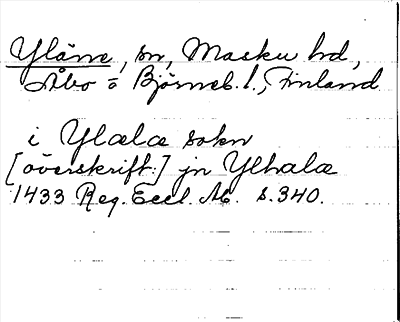 Yläne, sn, Masku hd,
Åbo o Björneb. l., Finland
i Ylælæ sokn
[överskrift:] jn Ylhalæ
1433 Reg. Eccl. Ab. s. 340.